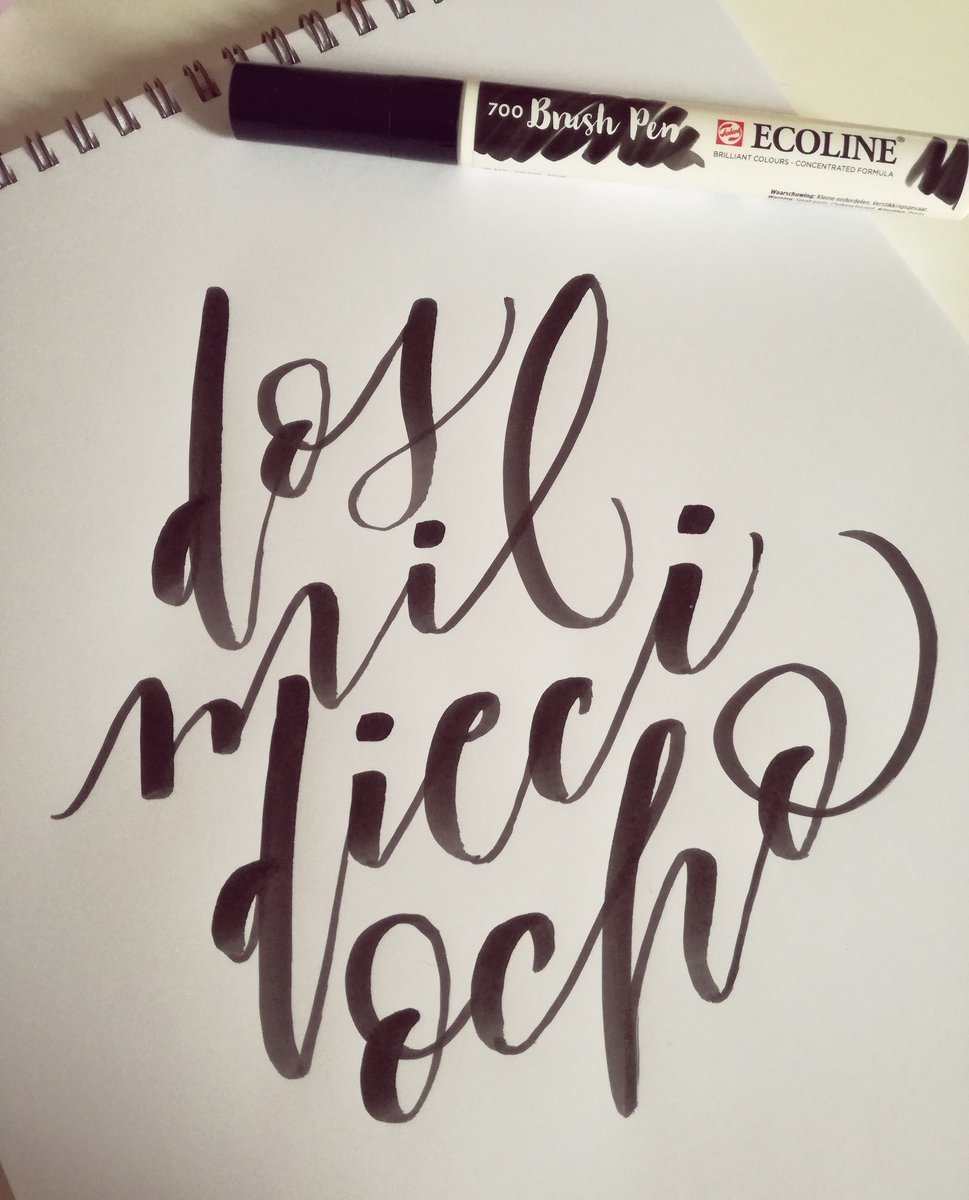 700 Brush Pen
ECOLINE®
BRILLIANT COLOURS - CONCENTRATED FORMULA
Waarschuwing: Kleine onderdelen, Verstikkingsgevaar
dos
mil
dieci
ocho